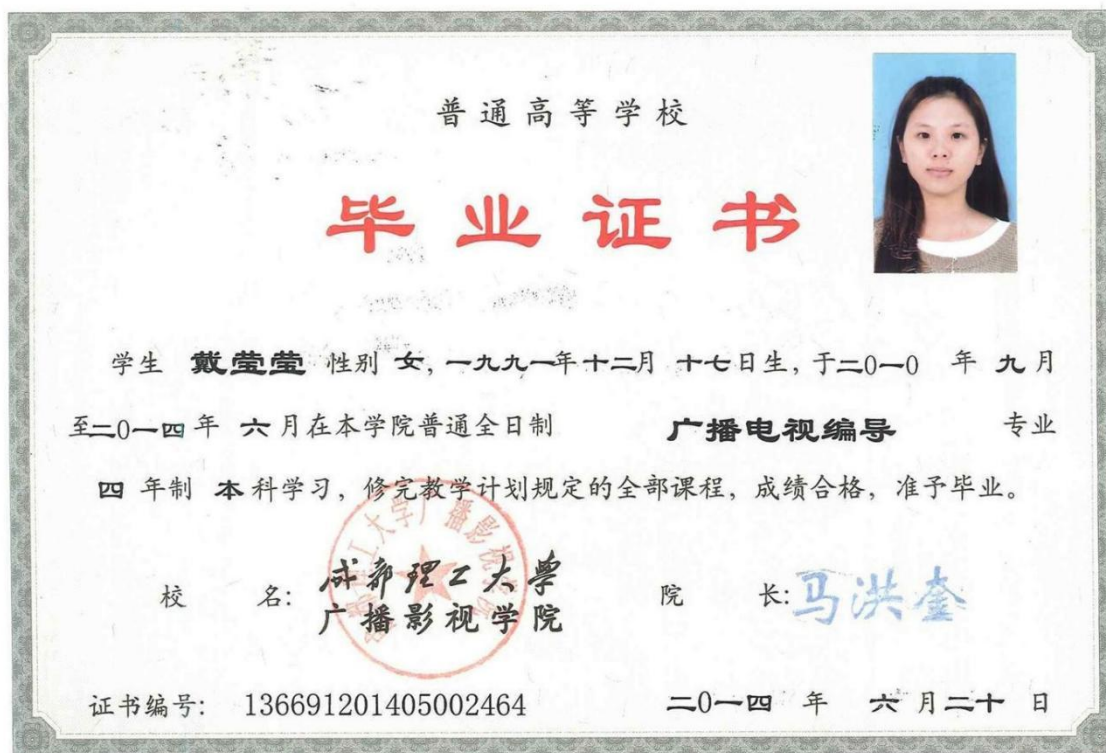 普通高等学校
毕业证书
学生 戴莹莹 性别 女, 一九九一年十二月 十七日生, 于二0一0 年 九月
至二0一四年 六月在本学院普通全日制 广播电视编导 专业
四 年制 本科学习, 修完教学计划规定的全部课程, 成绩合格, 准予毕业。
校 名: 成都理工大学 院 长: 马洪奎
广播影视学院
成都理工大学广播影视学院
证书编号: 136691201405002464 二0一四 年 六 月二十 日